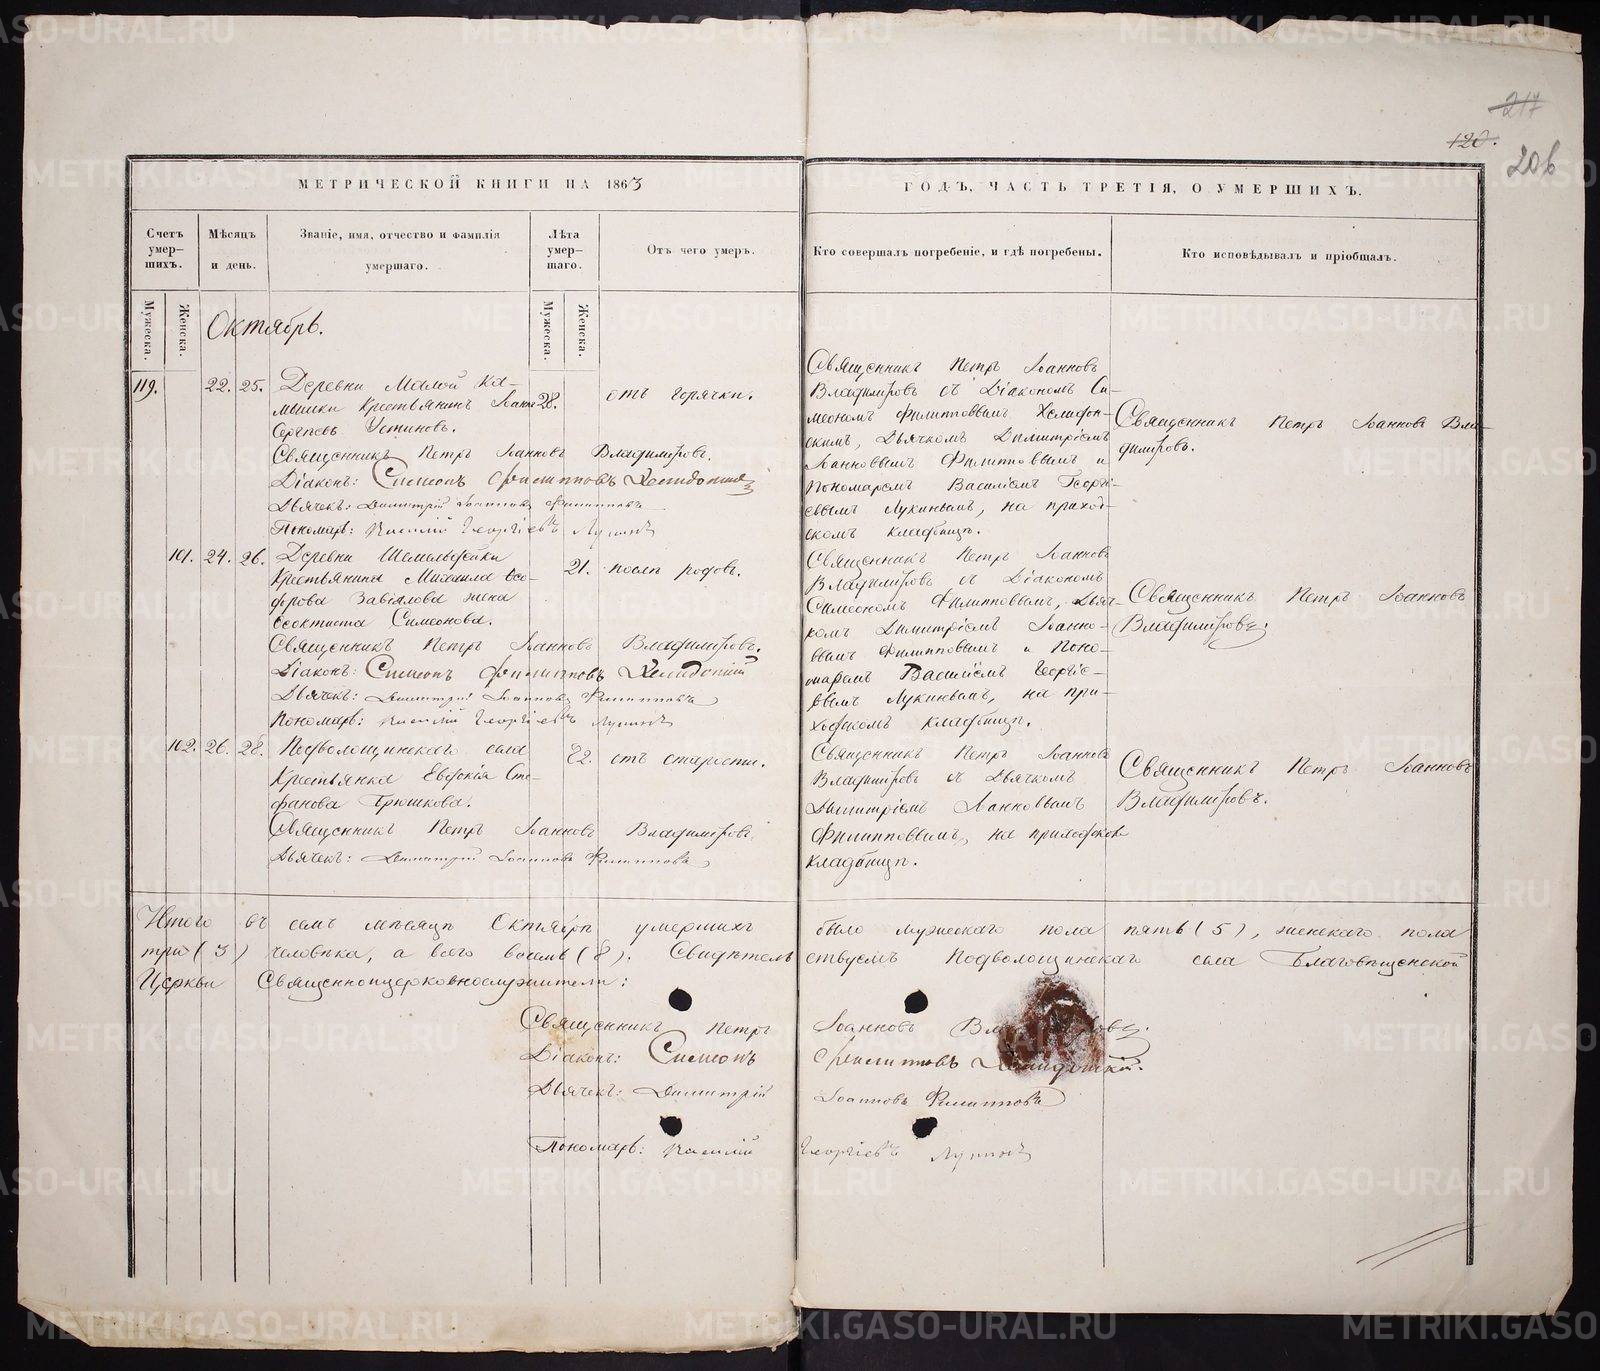 217
120.
206
МЕТРИЧЕСКОЙ КНИГИ НА 1863
ГОДЪ, ЧАСТЬ ТРЕТІЯ, О УМЕРШИХЪ.
Счетъ умер-шихъ.
Мѣсяцъ и день.
Званіе, имя, отчество и фамилія умершаго.
Лѣта умер-шаго.
Отъ чего умеръ.
Кто совершалъ погребеніе, и гдѣ погребены.
Кто исповѣдывалъ и пріобщалъ.
Мужеска.
Женска.
Мужеска.
Женска.
Октябрь.
119. 22. 25. Деревни Малой Ка-
мышки крестьянинъ Іоаннъ 28. отъ горячки.
Сергѣевъ Устиновъ.
Священникъ Петръ Іоанновъ Владиміровъ.
Діаконъ: Симеонъ Филипповъ Хелидонскій
Дьячекъ: Димитрій Іоанновъ Филипповъ
Пономарь: Василій Георгіевъ Лукинъ
Священникъ Петръ Іоанновъ
Владиміровъ съ Діакономъ Си-
меономъ Филипповымъ Хелидон-
скимъ, Дьячкомъ Димитріемъ
Іоанновымъ Филипповымъ и
Пономаремъ Василіемъ Георгі-
евымъ Лукинымъ, на приход-
скомъ кладбищѣ.
Священникъ Петръ Іоанновъ Вла-
диміровъ.
101. 24. 26. Деревни
крестьянина Михаила Ѳео-
дорова Завіялова жена
Ѳеоктиста Симеонова.
21. послѣ родовъ.
Священникъ Петръ Іоанновъ Владиміровъ.
Діаконъ: Симеонъ Филипповъ Хелидонскій
Дьячекъ: Димитрій Іоанновъ Филипповъ
Пономарь: Василій Георгіевъ Лукинъ
Священникъ Петръ Іоанновъ
Владиміровъ съ Діакономъ
Симеономъ Филипповымъ, Дьяч-
комъ Димитріемъ Іоанно-
вымъ Филипповымъ и Поно-
маремъ Василіемъ Георгіе-
вымъ Лукинымъ, на при-
ходскомъ кладбищѣ.
Священникъ Петръ Іоанновъ
Владиміровъ.
102. 26. 28. Подволошинскаго села
Крестьянка Евдокія Сте-
фанова Гришкова.
82. отъ старости.
Священникъ Петръ Іоанновъ Владиміровъ
Дьячекъ: Димитрій Іоанновъ Филипповъ
Священникъ Петръ Іоанновъ
Владиміровъ съ Дьячкомъ
Димитріемъ Іоанновымъ
Филипповымъ, на приходском
кладбищѣ.
Священникъ Петръ Іоанновъ
Владиміровъ.
Итого въ семъ мѣсяцѣ Октябрѣ умершихъ было мужескаго пола пять (5), женскаго пола
три (3) человѣка, а всего восемь (8). Свидѣтельствуемъ Подволошинскаго села Благовѣщенской
Церкви Священноцерковнослужители:
Священникъ Петръ Іоанновъ Владиміровъ.
Діаконъ: Симеонъ Филипповъ Хелидонскій.
Дьячекъ: Димитрій Іоанновъ Филипповъ
Пономарь: Василій Георгіевъ Лукинъ
METRIKI.GASO-URAL.RU